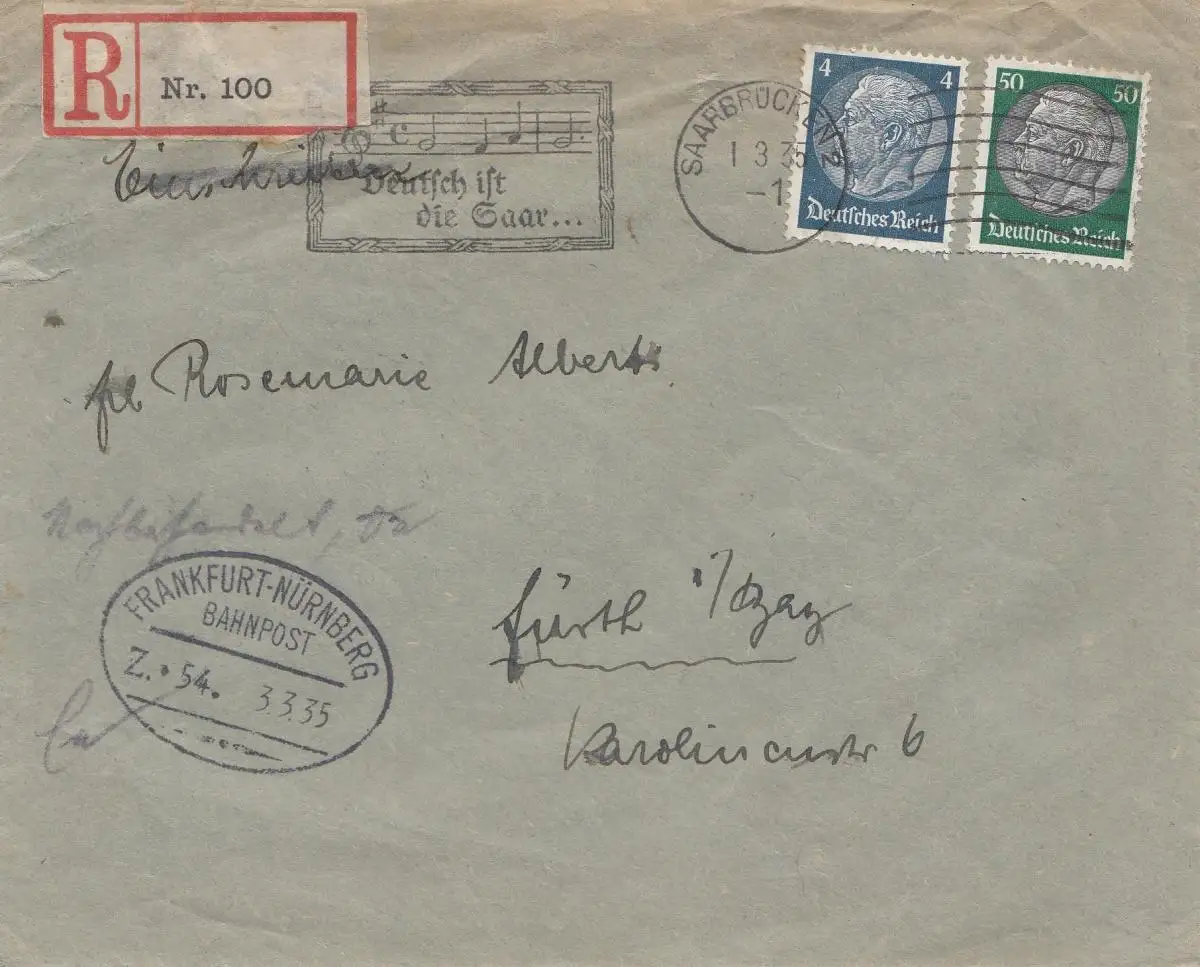 R Nr. 100
Einschreiben
Deutsch ist
die Saar...
SAARBRÜCKEN 2
1 3 35
–1
4 4
Deutsches Reich
50 50
Deutsches Reich
frl Rosemarie Alberts
Fürth i/Bay
Karolinenstr 6
FRANKFURT-NÜRNBERG
BAHNPOST
Z. 54. 3.3.35